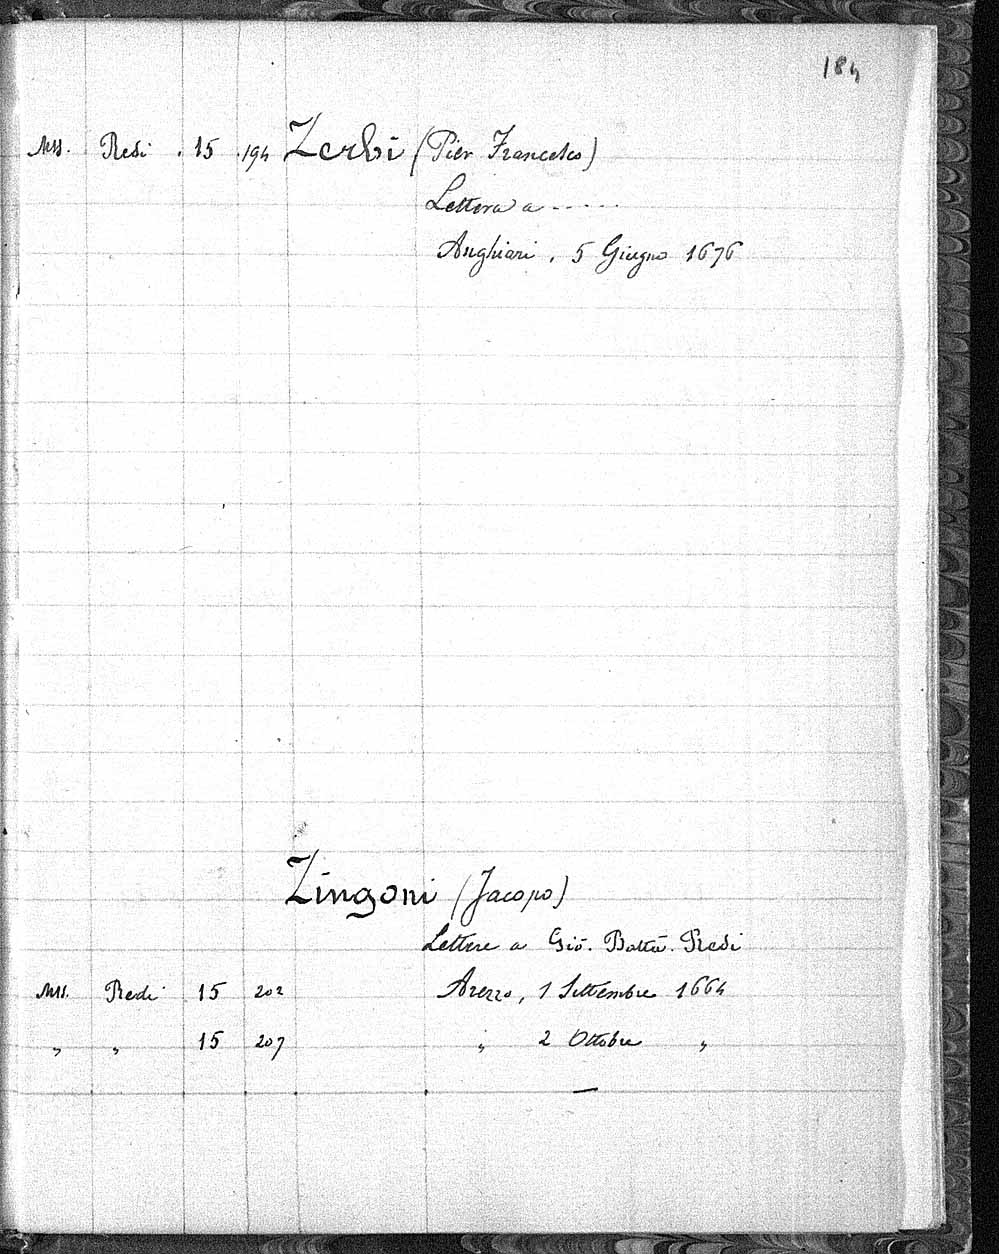 184
Mss. Redi . 15 . 194 Zerbi (Pier Francesco)
Lettera a ......
Anghiari, 5 Giugno 1676
Zingoni (Jacopo)
Lettere a Gio. Batta. Redi
Mss. Redi 15 202 Arezzo, 1 Settembre 1664
" " 15 207 " 2 Ottobre "